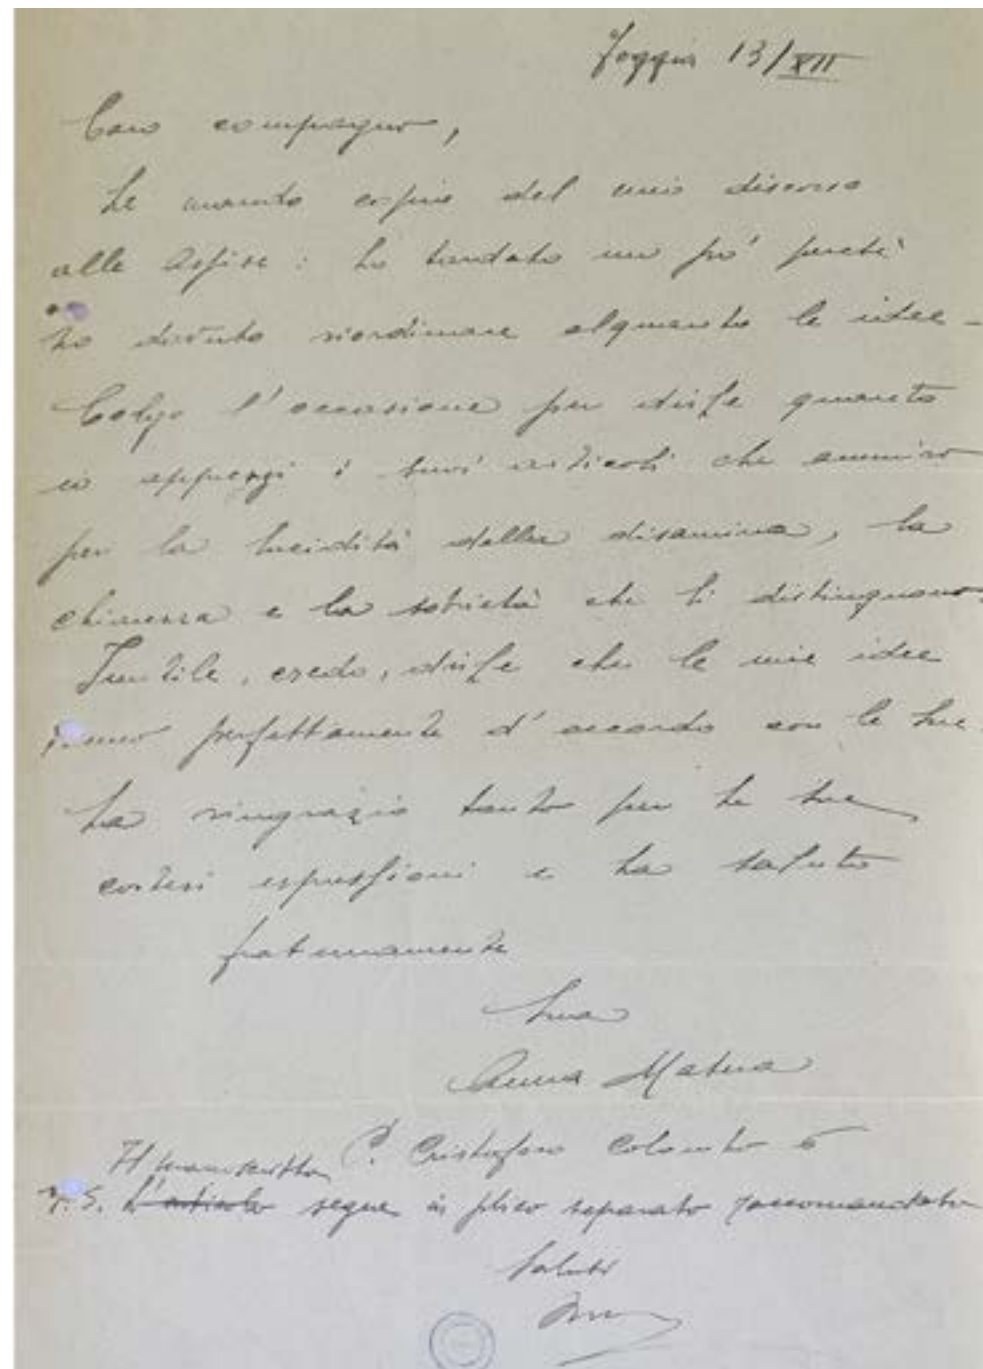 Foggia 13/XII
Caro compagno,
Le mando copia del mio discorso
alle Assise: ho tardato un po' perchè
ho dovuto riordinare alquanto le idee -
Colgo l'occasione per dirle quanto
io apprezzi i suoi articoli che ammiro
per la lucidità della disamina, la
chiarezza e la sobrietà che li distinguono.
Inutile, credo, dirle che le mie idee
sono perfettamente d'accordo con le sue.
La ringrazio tanto per le sue
cortesi espressioni e La saluto
fraternamente
Sua
Anna Matera
P. Cristoforo Colombo 6
Il manoscritto
P.S. L'articolo segue in plico separato raccomandato
Saluti